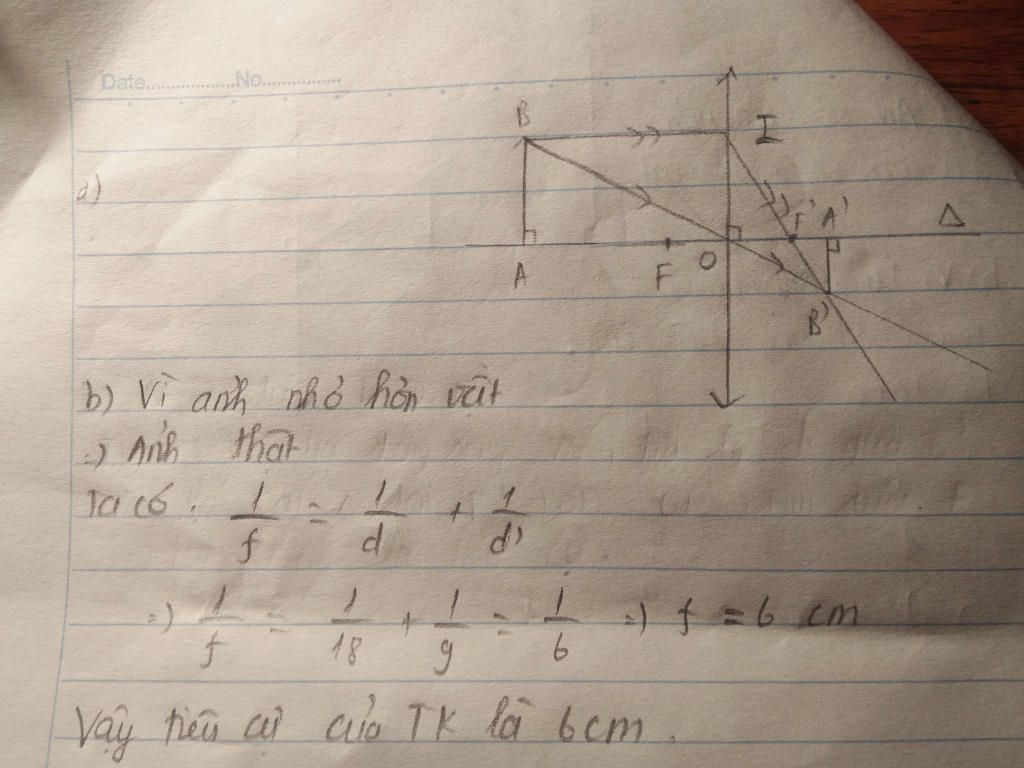 Date..................No................
B
I
a)
F' A' Δ
A F O
B'
b) Vì ảnh nhỏ hơn vật
=) Ảnh thật
Ta có . 1/f = 1/d + 1/d'
=) 1/f = 1/18 + 1/9 = 1/6 =) f = 6 cm
Vậy tiêu cự của TK là 6cm .